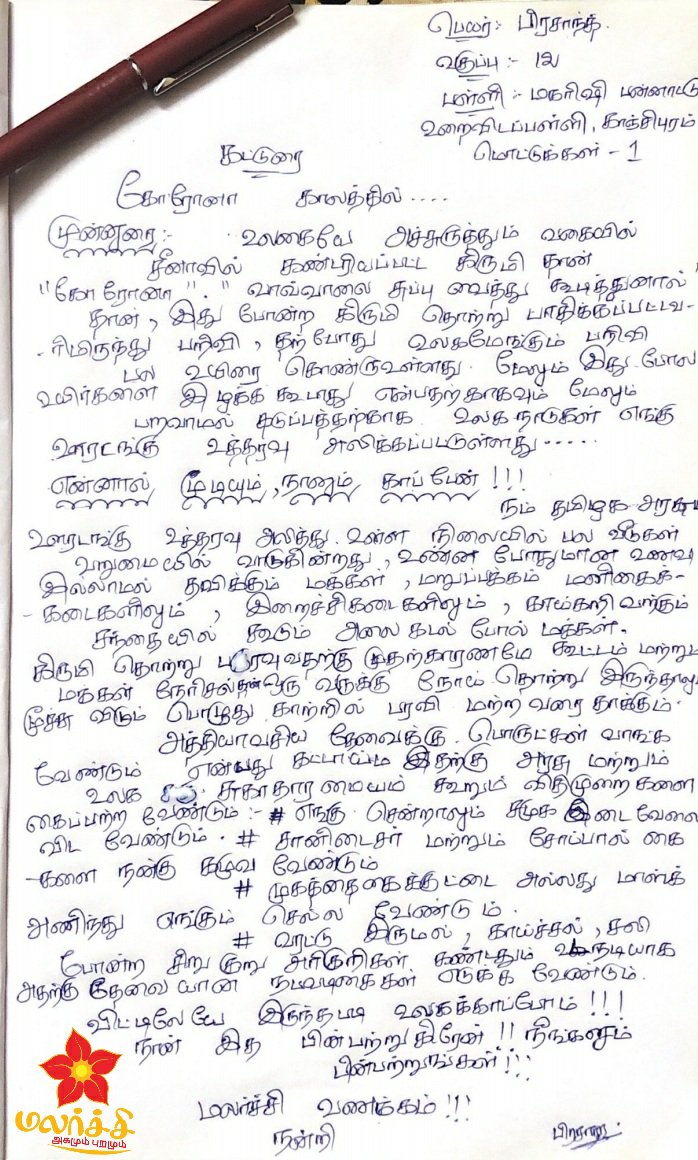 பெயர்: பிரசாந்த்.
வகுப்பு :-
பள்ளி :- மகரிஷி பன்னாட்டு
உறைவிடப்பள்ளி, காஞ்சிபுரம்
மொட்டுக்கள் - 1
கட்டுரை
கோரோனா காலத்தில் ....
முன்னுரை:- உலகையே அச்சுருத்தும் வகையில்
சீனாவில் கண்டறியப்பட்ட கிருமி தான்
"கோரோனா". வாவ்வாலை சுப்பு வைத்து கூடித்துனால்
தான், இது போன்ற கிருமி தொற்று பாதிக்கப்பட்டவ-
-ரிமிருந்து பறிவி, தற்போது உலகமேங்கும் பறிவி
பல உயிரை கொண்டுஉள்ளது. மேலும் இது போல
உயிர்களை இழக்க கூடாது என்பதற்காகவும் மேலும்
பறவாமல் தடுப்பத்தற்காக உலக நாடுகள் எங்கு
ஊரடங்கு உத்தரவு அலிக்கப்பட்டுள்ளது.....
என்னால் முடியும், நானும் காப்பேன்!!!
நம் தமிழக அரசும்
ஊரடங்கு உத்தரவு அலித்து உள்ள நிலையில் பல வீடுகள்
வறுமையில் வாடுகின்றது, உண்ண போதுமான உணவு
இல்லாமல் தவிக்கும் மக்கள், மறுப்பக்கம் மளிகைக்-
-கடைகளிலும், இறைச்சிகடைகளிலும், காய்கறி வாங்கும்
சந்தையில் கூடும் அலை கடல் போல் மக்கள்.
கிருமி தொற்று பரவுவதற்கு முதற்காரணமே கூட்டம் மற்றும்
மக்கள் நேரிசல்தான் ஒரு வருக்கு நோய் தொற்று இருந்தாலும்
மூச்சு விடும் பொழுது காற்றில் பரவி மற்ற வரை தாக்கும்.
அத்தியாவசிய தேவைக்கு பொருட்கள் வாங்க
வேண்டும் என்பது கட்டாய்ம இதற்கு அரசு மற்றும்
உலக சுகாதார மையம் கூறும் விதிமுறைகளை
கைப்பற்ற வேண்டும்:- # எங்கு சென்றாலும் சமூக இடைவேளை
விட வேண்டும். # சானிடைசர் மற்றும் சோப்பால் கை
-களை நன்கு கழுவ வேண்டும்
# முகத்தை கைக்குட்டை அல்லது மாஸ்க்
அணிந்து எங்கும் செல்ல வேண்டும்.
# வரட்டு இருமல், காய்ச்சல், சலி
போன்ற சிறு குறு அரிகுறிகள் கண்டதும் உடநடியாக
அதற்கு தேவையான நடவடிகைகள் எடுக்க வேண்டும்.
விட்டிலேயே இருந்தபடி உலகக்காப்போம்!!!
நான் இத பின்பற்றுகிரேன்!! நீங்களும்
பின்பற்றுங்கள்!!!
மலர்ச்சி வணக்கம்!!!
நன்றி
மலர்ச்சி
அகமும் புறமும்